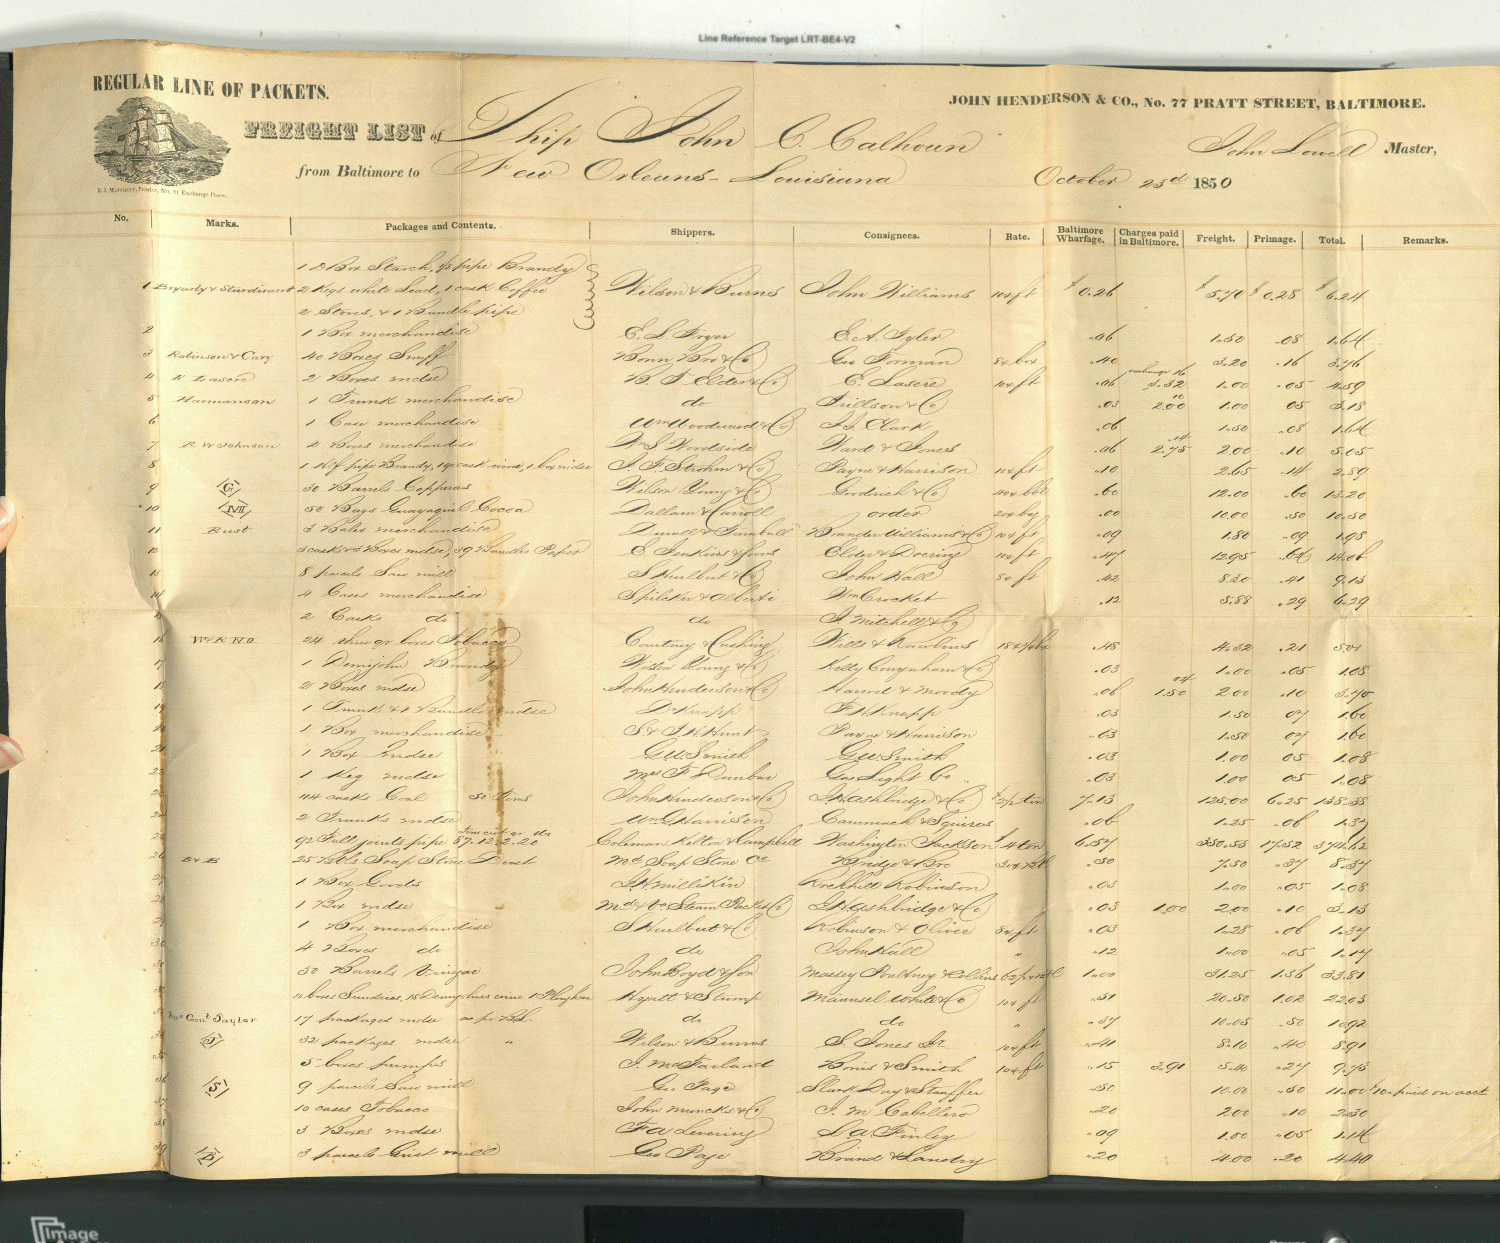 Line Reference Target LRT-BE4-V2
REGULAR LINE OF PACKETS.
JOHN HENDERSON & CO., No. 77 PRATT STREET, BALTIMORE.
FREIGHT LIST of Ship John C. Calhoun John Lowell Master,
from Baltimore to New Orleans - Louisiana October 23d 1850
No. Marks. Packages and Contents. Shippers. Consignees. Rate. Baltimore Wharfage. Charges paid in Baltimore. Freight. Primage. Total. Remarks.
1 Box Starch, pipe Brandy
1 2 Kegs white Lead, 1 cask Coffee Wilson & Burns John Williams 10 ft $0.26 $5.70 $0.28 $6.24
2 Stoves, & 1 Bundle pipe
2 1 Box merchandise E. S. Fryer E. A. Tyler .06 1.50 .08 1.64
3 Robinson & Cary 40 Boxes Snuff Geo Forman 8 box .40 3.20 .16 3.76
4 E Lasere 2 Boxes mdse B. F. Elder & Co E. Lasere 10 ft .06 3.32 1.00 .05 4.59
5 Harmanson 1 Trunk merchandise do Tillson & Co .03 2.00 1.00 05 3.18
6 1 Case merchandise Wm Woodward & Co J. J. Clark .06 1.50 .08 1.64
7 R W Johnson 2 Boxes merchandise Wm S Woodside Ward & Jones .06 2.75 2.00 .10 5.05
8 1 Hf pipe Brandy, 1 qr cask wine, 1 box mdse J. F. Strohm & Co Payne & Harrison 10 ft .10 2.65 .14 2.89
9 G 30 Barrels Copperas Wilson Young & Co Goodrich & Co 40 bbl .60 12.00 .60 13.20
10 M 50 Bags Guayaquil Cocoa Dallam & Carroll order 20 bag .00 10.00 .50 10.50
11 3 Bales merchandise Duvall & Turnbull Brander Williams & Co 10 ft .09 1.80 .09 1.98
12 3 casks & 3 Boxes mdse, 39 Bundles Paper E Jenkins & Sons Elder & Doering 10 ft .47 12.95 .64 14.06
13 8 parcels Saw mill S Hurlbut & Co John Hall 8 ft .42 8.30 .41 9.13
14 4 Cases merchandise Spilcker & Alberti Wm Crocket .12 5.88 .29 6.29
15 2 Casks do do J. Mitchell & Co
16 24 thre qr boxes Tobacco Courtney & Cushing Wills & Rawlins .48 4.32 .21 5.01
17 1 Demijohn Brandy Wilson Young & Co Kelly Conyngham & Co .03 1.00 .05 1.08
18 2 Boxes mdse John Henderson & Co Harrod & Mordy .06 1.50 2.00 .10 3.70
19 1 Trunk & 1 Bundle mdse D. Knapp F. H. Knapp .03 1.50 07 1.60
20 1 Box merchandise S & J. H. Hunt Payne & Harrison .03 1.50 07 1.60
21 1 Box mdse G W. Smith G W. Smith .03 1.00 05 1.08
22 1 Keg mdse Mrs F Dunbar Gas Light Co .03 1.00 05 1.08
23 44 casks Coal 50 Tons John Henderson & Co J. H. Ashbridge & Co 7.13 125.00 6.25 138.38
24 2 Trunks mdse Wm G Harrison Cammack & Squires .06 1.25 .06 1.37
25 92 Full joints pipe 87.12.2.20 Coleman Kelton & Campbell Washington Jackson $4 ton 6.57 350.53 17.52 374.62
26 25 Bbls Soap Stone Dust Md Soap Stone Co Bridge & Bro 30 Bbl .50 7.50 .37 8.37
27 1 Box Goods J. H. Millikin Rockhill Robinson .03 1.00 .05 1.08
28 1 Box mdse Md & Va Steam Packet Co J. H. Ashbridge & Co .03 1.00 2.00 .10 3.13
29 1 Box merchandise S. Hurlbut & Co Robinson & Oliver 8 ft .03 1.28 .06 1.37
30 4 Boxes do do John Hall .12 1.00 .05 1.17
31 50 Barrels Vinegar John Boyd & Son Massey Poultney & Collins 62½ Bbl 1.00 31.25 1.56 33.81
32 boxes Sundries, 18 Demijhns wine 1 Plough Hyatt & Stump Maunsel White & Co 10 ft .51 20.50 1.02 22.03
33 Genl Taylor 17 packages mdse as pr BL. do do " .37 10.05 .50 10.92
34 J 32 packages mdse " Wilson & Burns S. Jones Jr 10 ft .41 8.10 .40 8.91
35 5 boxes pumps J. McFarland Bonis & Smith 10 ft .15 3.91 5.40 .27 9.73
36 S 9 parcels Saw mill Geo Page Slark Day & Stauffer .50 10.00 .50 11.00 $10 paid on acct
37 10 cases Tobacco John Muncks & Co J. M. Caballero .20 2.00 .10 2.30
38 3 Boxes mdse F A Levering S A Finley .09 1.00 .05 1.14
39 B 3 parcels Grist mill Geo Page Brand & Landry .20 4.00 .20 4.40
Image